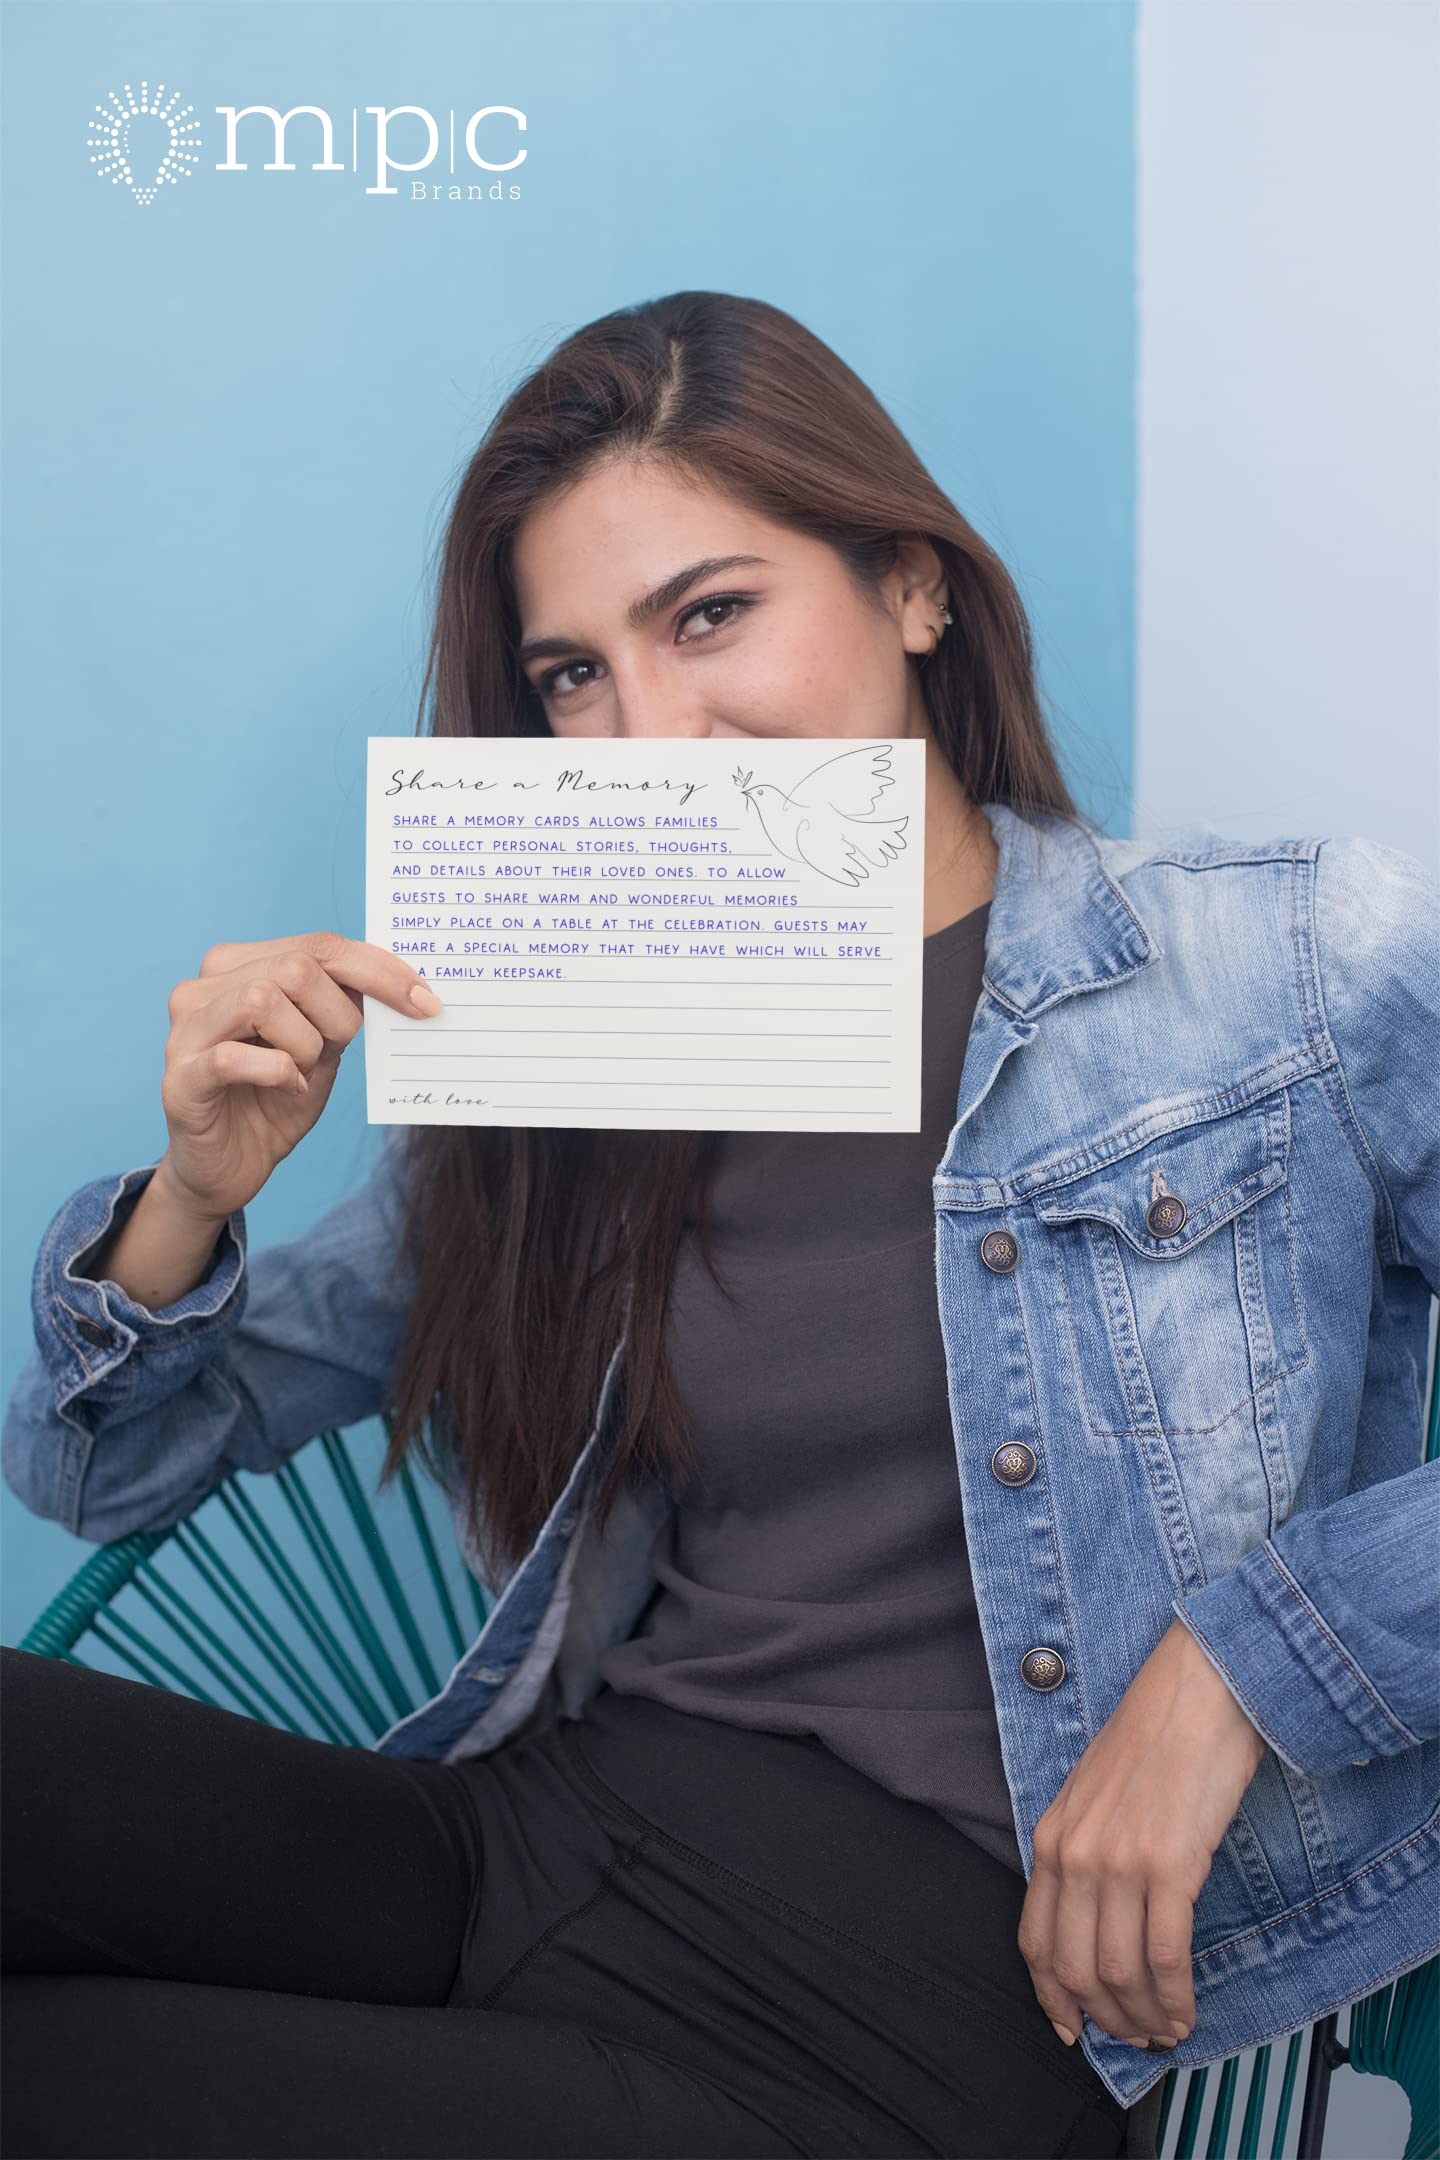 m|p|c
Brands
Share a Memory
SHARE A MEMORY CARDS ALLOWS FAMILIES
TO COLLECT PERSONAL STORIES, THOUGHTS,
AND DETAILS ABOUT THEIR LOVED ONES. TO ALLOW
GUESTS TO SHARE WARM AND WONDERFUL MEMORIES
SIMPLY PLACE ON A TABLE AT THE CELEBRATION. GUESTS MAY
SHARE A SPECIAL MEMORY THAT THEY HAVE WHICH WILL SERVE
A FAMILY KEEPSAKE.
with love